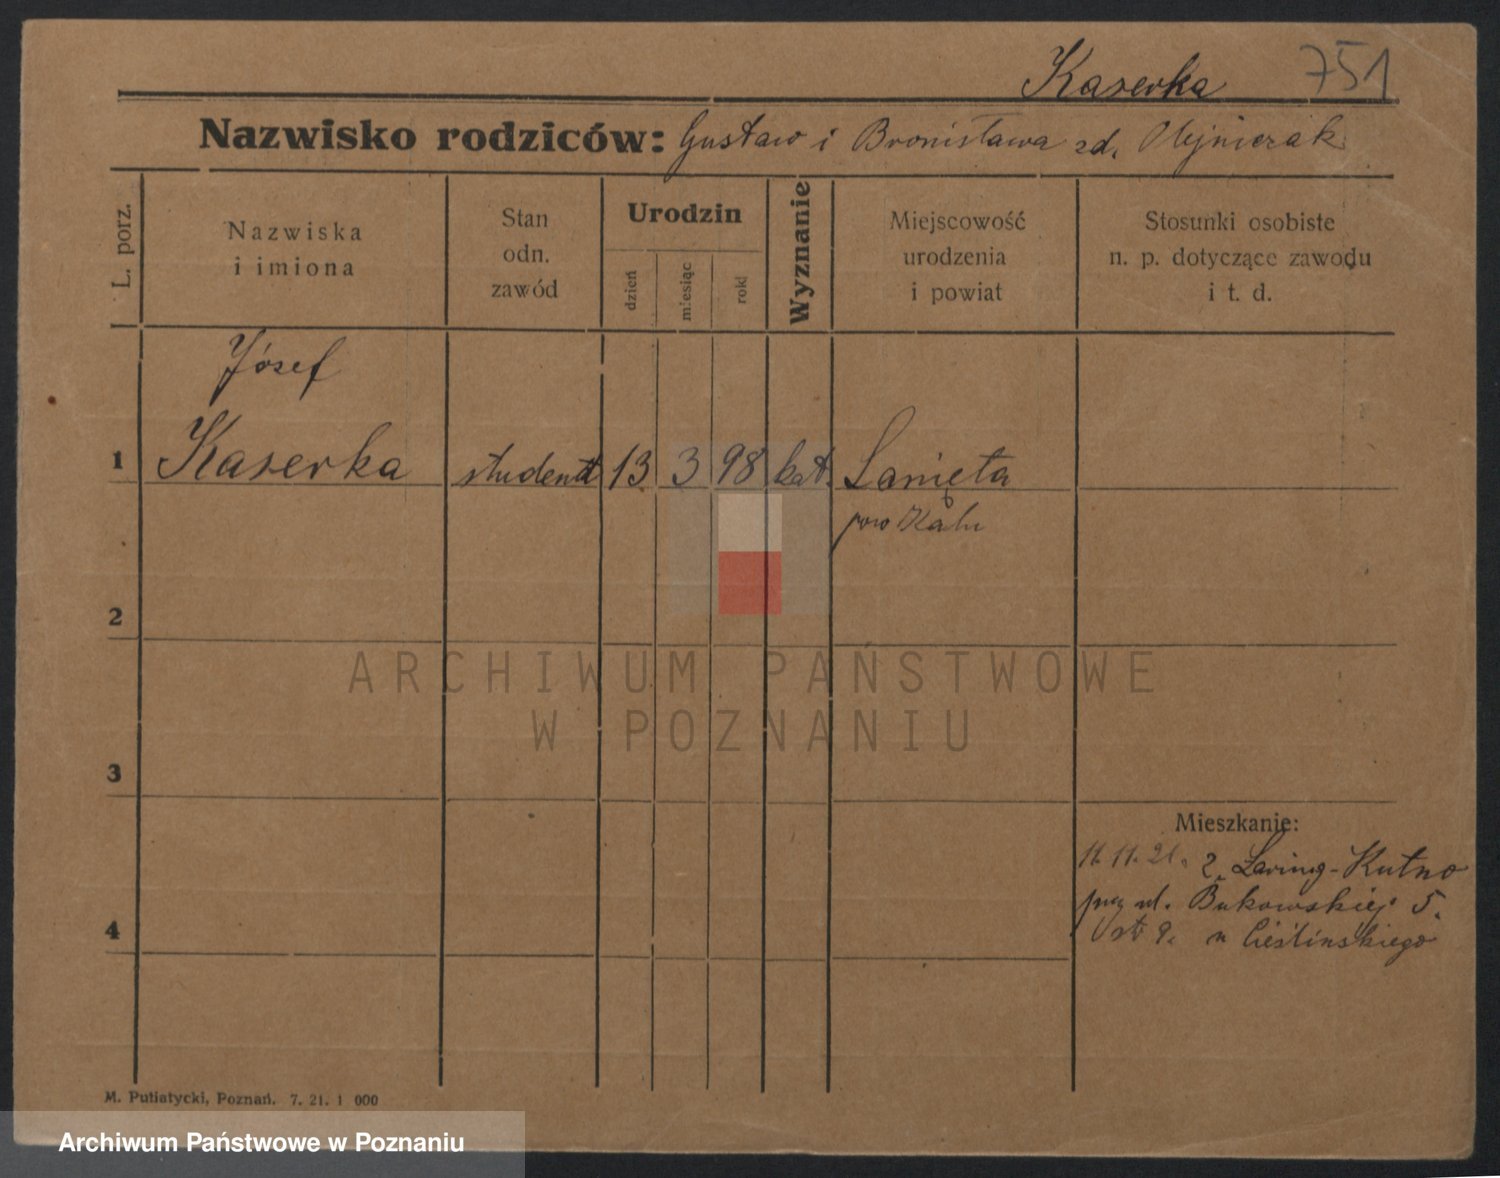 Kaserka 751
Nazwisko rodziców: Gustaw i Bronisława zd. Olejniczak
L. porz.
Nazwiska
i imiona
Stan
odn.
zawód
Urodzin
dzień
miesiąc
rok
Wyznanie
Miejscowość
urodzenia
i powiat
Stosunki osobiste
n. p. dotyczące zawodu
i t. d.
Józef
1 Kaserka student 13 3 98 kat. Łanięta
pow
2
ARCHIWUM PAŃSTWOWE
W POZNANIU
3
Mieszkanie:
11.11.21. Kutno
ul. Bukowskiej 5.
4
u Cieślińskiego
M. Putiatycki, Poznań. 7. 21. 1 000
Archiwum Państwowe w Poznaniu